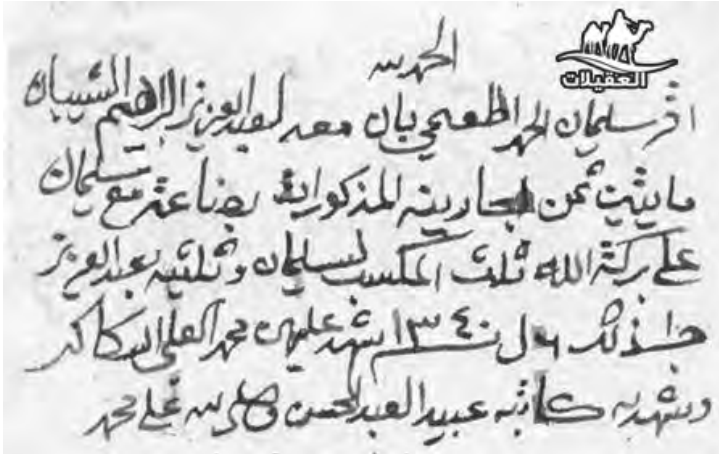 العقيلات
الحمد لله
اقر سليمان الحمد الطعيمي بان معه لعبد العزيز البراهيم الشيبان
مايتين ثمن المذكورات بضاعة مع سليمان
على بركة الله ثلث المكسب لسليمان وثلثيه لعبد العزيز
ل سنة ١٣٤٠ شهد على محمد العلي الشاكر
وشهد به كاتبه عبيد العبد المحسن وصلى الله على محمد